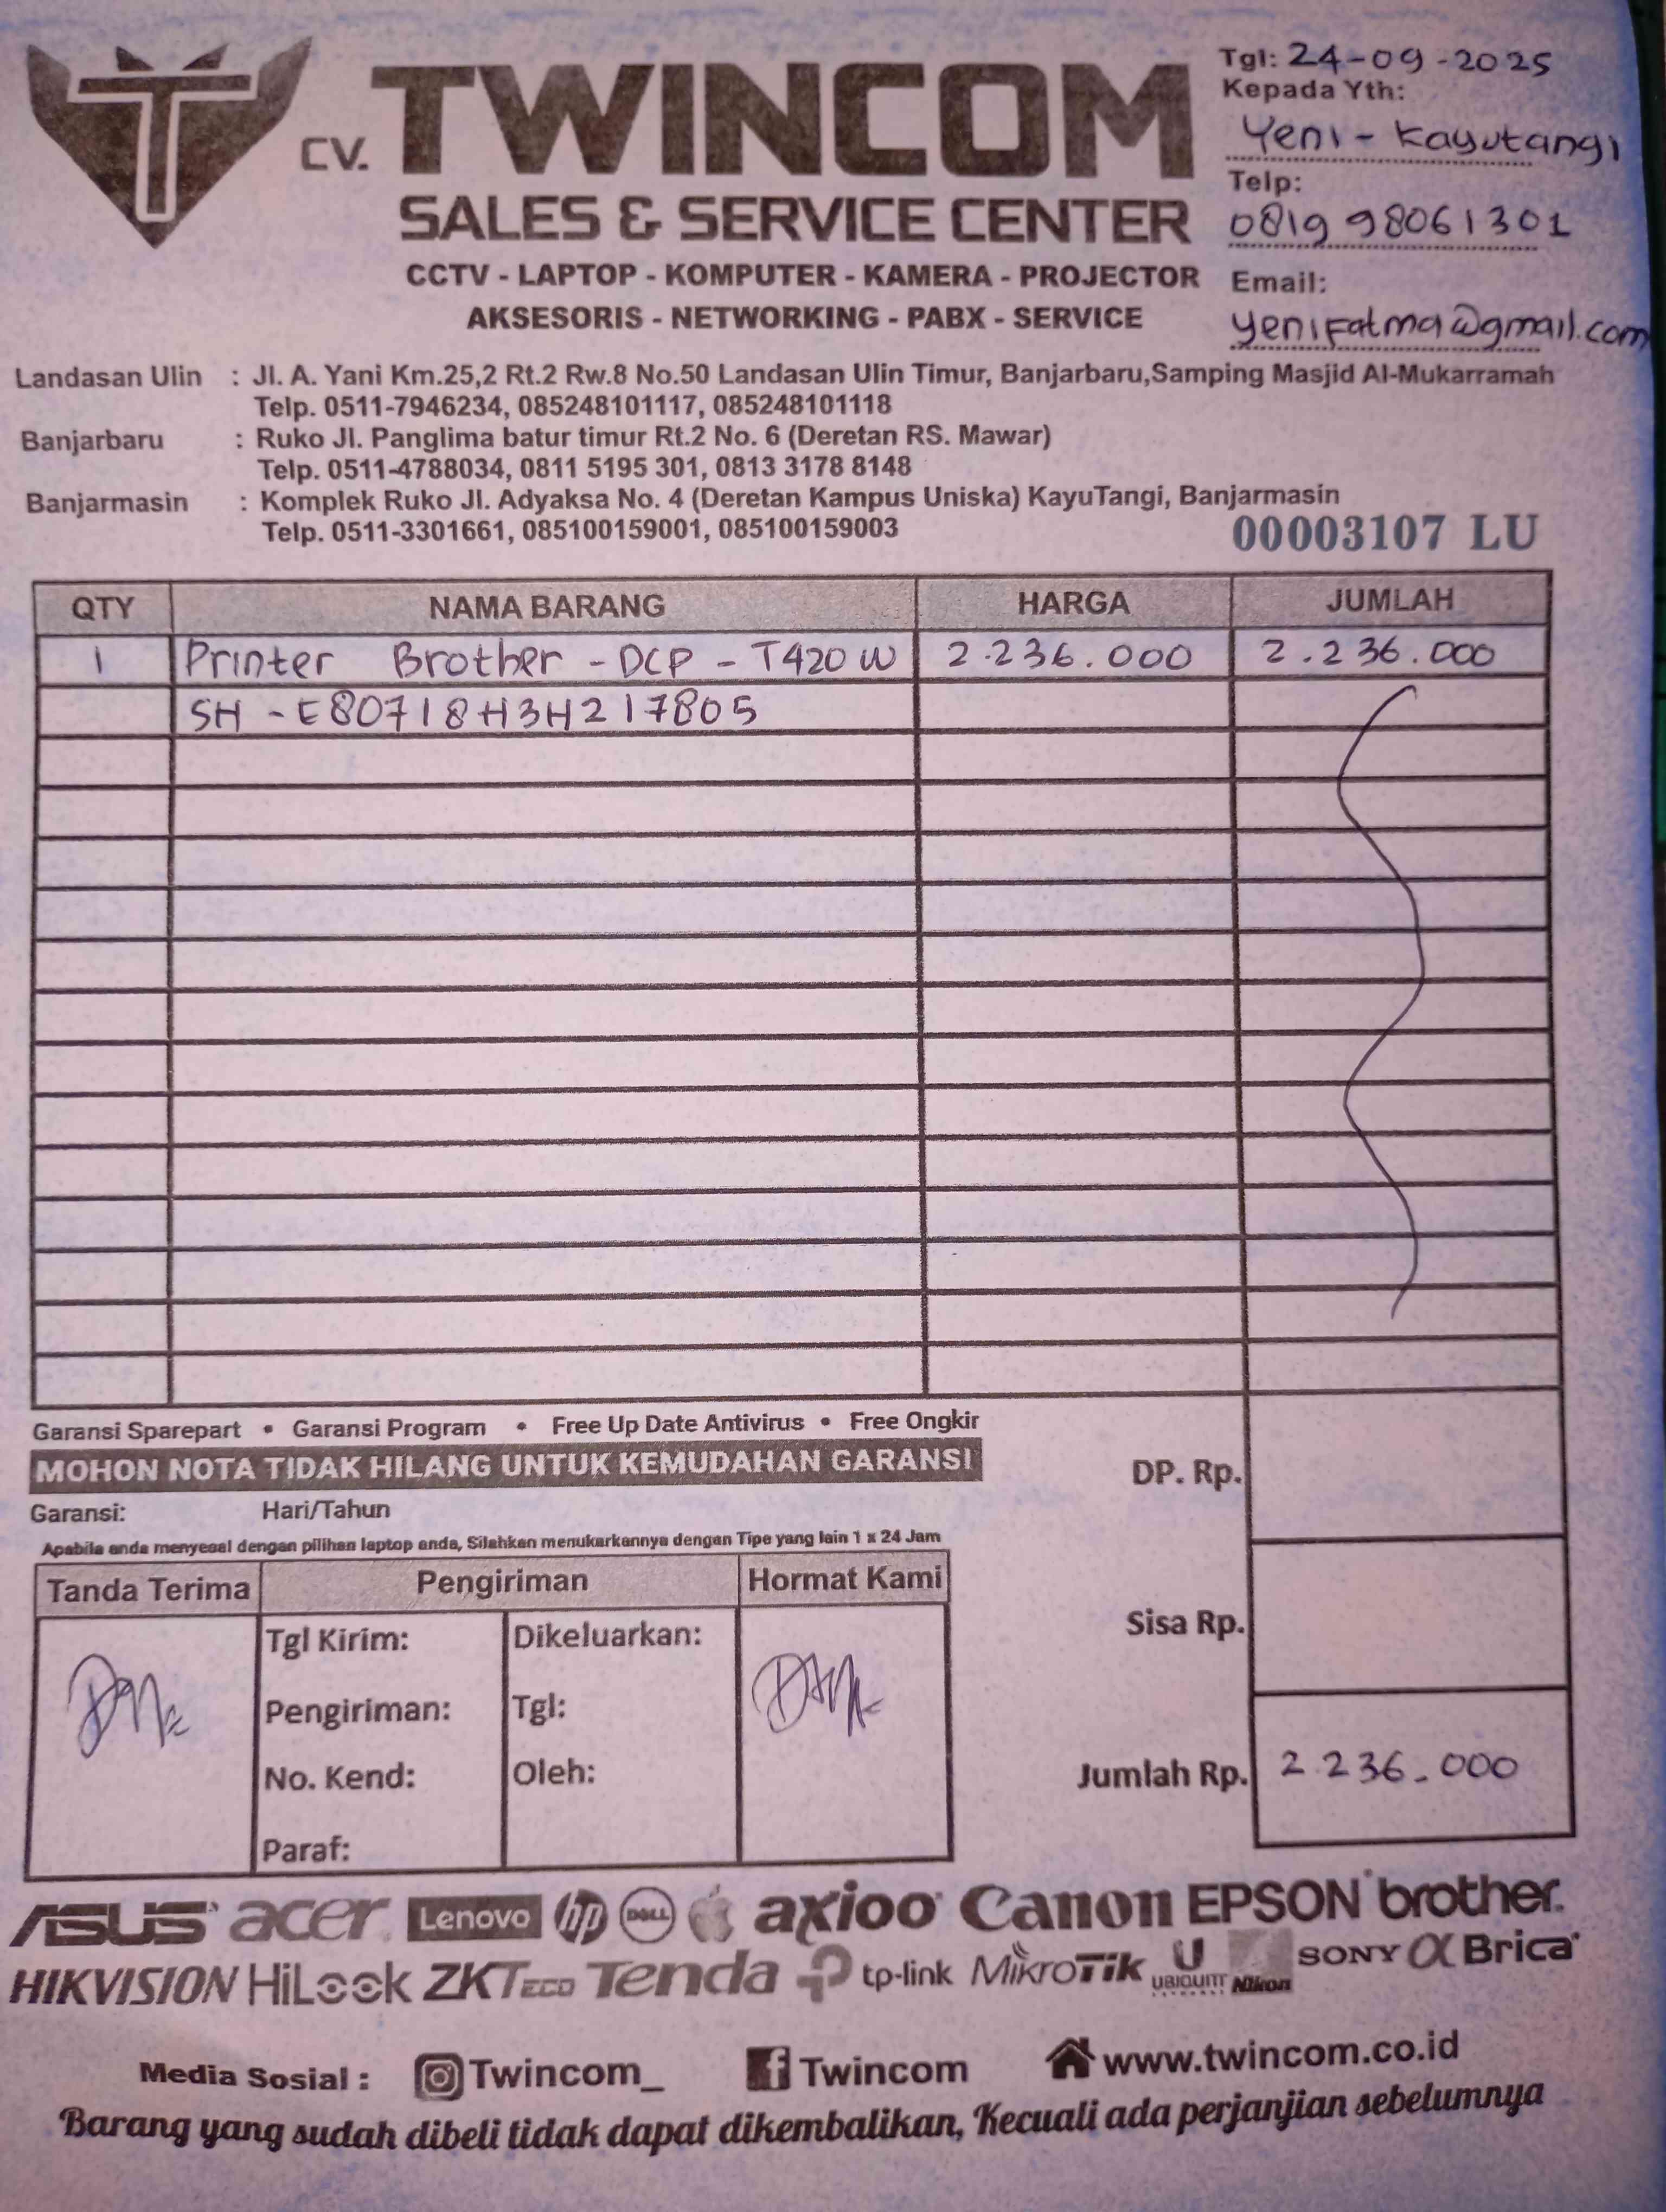 CV. TWINCOM
SALES & SERVICE CENTER
CCTV - LAPTOP - KOMPUTER - KAMERA - PROJECTOR
AKSESORIS - NETWORKING - PABX - SERVICE
Tgl: 24-09-2025
Kepada Yth:
Yeni - Kayutangi
Telp:
0819 98061301
Email:
yenifatma@gmail.com
Landasan Ulin : Jl. A. Yani Km.25,2 Rt.2 Rw.8 No.50 Landasan Ulin Timur, Banjarbaru,Samping Masjid Al-Mukarramah
Telp. 0511-7946234, 085248101117, 085248101118
Banjarbaru : Ruko Jl. Panglima batur timur Rt.2 No. 6 (Deretan RS. Mawar)
Telp. 0511-4788034, 0811 5195 301, 0813 3178 8148
Banjarmasin : Komplek Ruko Jl. Adyaksa No. 4 (Deretan Kampus Uniska) KayuTangi, Banjarmasin
Telp. 0511-3301661, 085100159001, 085100159003
00003107 LU
QTY NAMA BARANG HARGA JUMLAH
1 Printer Brother - DCP - T420W 2.236.000 2.236.000
SH - E80718H3H217805
Garansi Sparepart • Garansi Program • Free Up Date Antivirus • Free Ongkir
MOHON NOTA TIDAK HILANG UNTUK KEMUDAHAN GARANSI
Garansi: Hari/Tahun
Apabila anda menyesal dengan pilihan laptop anda, Silahkan menukarkannya dengan Tipe yang lain 1 x 24 Jam
DP. Rp.
Sisa Rp.
Jumlah Rp. 2.236.000
Tanda Terima Pengiriman Hormat Kami
Tgl Kirim: Dikeluarkan:
Pengiriman: Tgl:
No. Kend: Oleh:
Paraf:
ASUS acer Lenovo hp DELL axioo Canon EPSON brother
HIKVISION HiLook ZKTECO Tenda tp-link MikroTik U UBIQUITI Nikon SONY α Brica
Media Sosial : Twincom_ f Twincom www.twincom.co.id
Barang yang sudah dibeli tidak dapat dikembalikan, Kecuali ada perjanjian sebelumnya